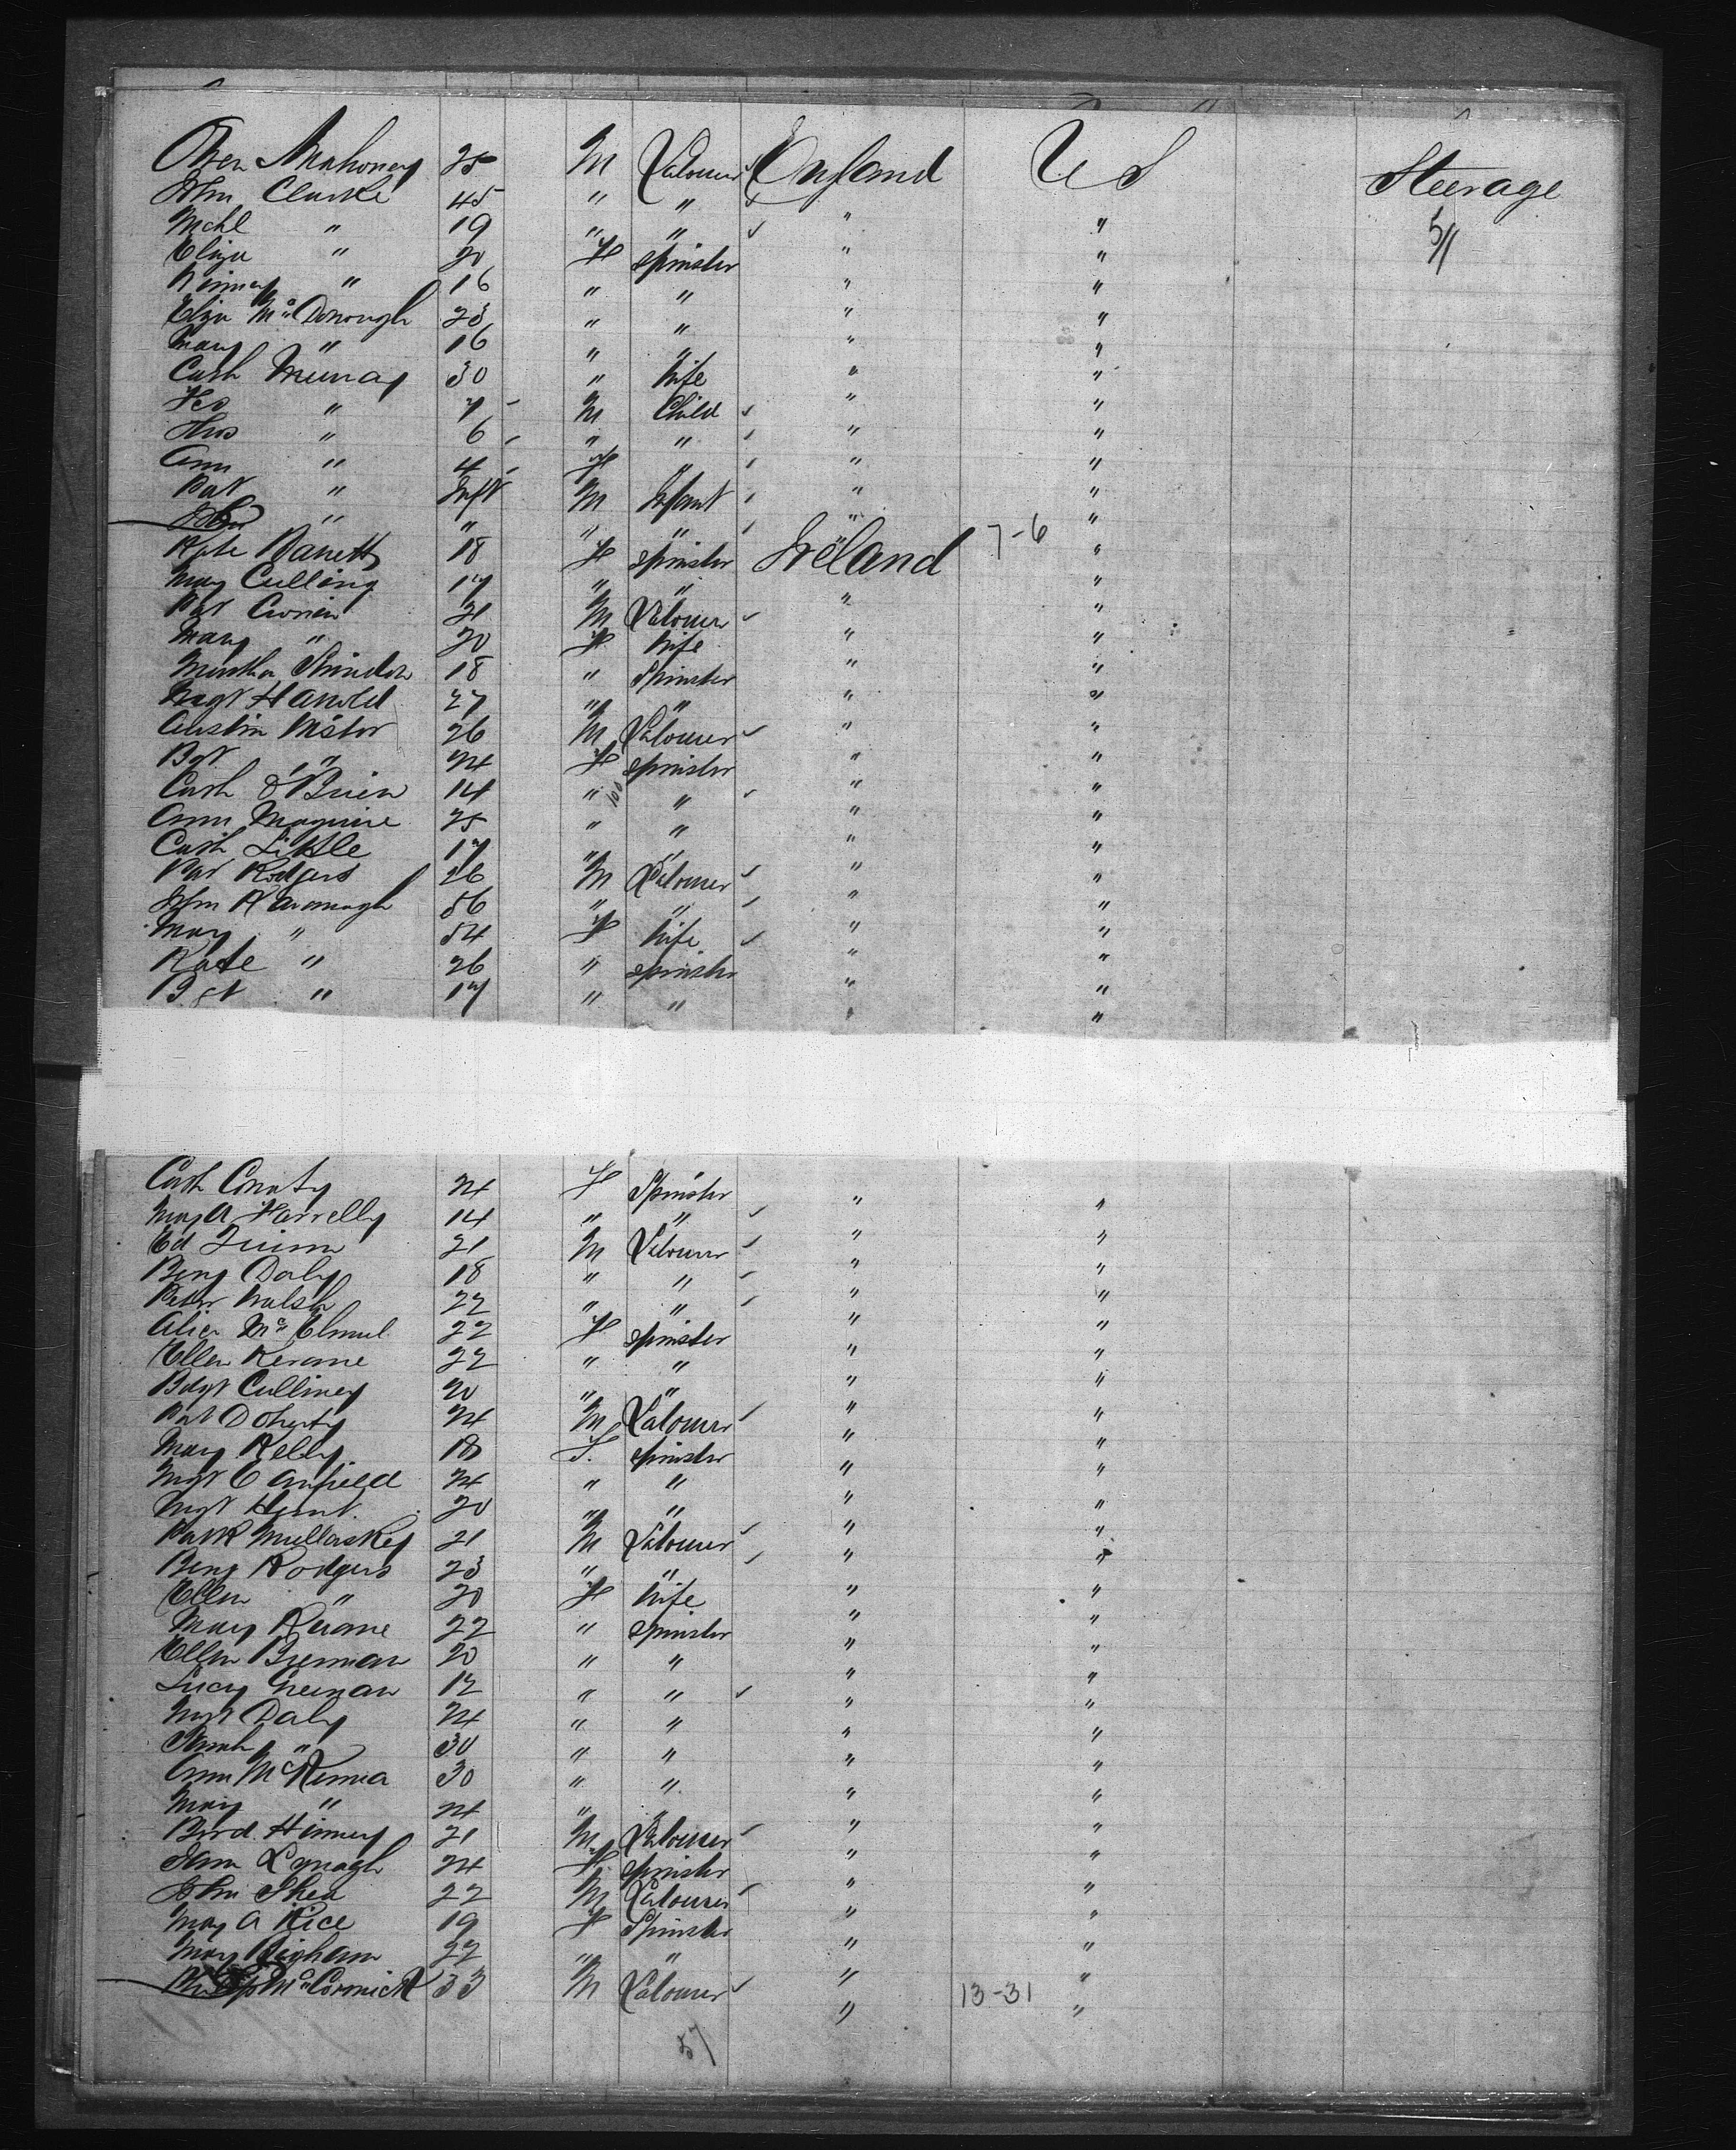 Owen Mahoney 25 M Labourer England U S Steerage
John Clarke 45 " " " "
Mchl " 19 " " " " 5/1
Eliza " 20 F Spinster " "
" 16 " " " "
Eliza McDonough 23 " " " "
Mary " 16 " " " "
Cath Murray 30 " Wife " "
" 7 M Child " "
Thos " 6 " " " "
Ann " 4 F " " "
Pat " Inft M Infant " "
John " " " " " "
Kate Barrett 18 F Spinster Ireland 7-6 "
Mary Culling 17 " " " "
Pat Cronin 21 M Labourer " "
Mary " 20 F Wife " "
Martha 18 " Spinster " "
Mgt Harold 27 " " " "
Austin Nestor 26 M Labourer " "
Bgt " 24 F Spinster " "
Cath O'Brien 14 " 100 " " "
Ann Maguire 25 " " " "
Cath Little 17 " " " "
Pat Rodgers 26 M Labourer " "
John Kavanagh 56 " " " "
Mary " 54 F Wife " "
Kate " 26 " Spinster " "
Bgt " 17 " " " "
"
Cath Conaty 24 F Spinster " "
Mary A Farrelly 14 " " " "
Ed Quinn 21 M Labourer " "
Benj Daly 18 " " " "
Peter Walsh 22 " " " "
Alice Mc 22 F Spinster " "
Ellen Kerane 22 " " " "
Bdgt Culliney 20 " " " "
Pat Doherty 24 M Labourer " "
Mary Kelly 18 F. Spinster " "
Mgt Canfield 24 " " " "
Mgt Hunt. 20 " " " "
Patk Mullarkey 21 M Labourer " "
Benj Rodgers 23 " " " "
Ellen " 20 F Wife " "
Mary Ruane 22 " Spinster " "
Ellen Brennan 20 " " " "
Lucy 12 " " " "
Mgt Daly 24 " " " "
Sarah " 30 " " " "
Ann McKenna 30 " " " "
Mary " 24 " " " "
Bird. 21 M Labourer " "
Lynagh 24 F. Spinster " "
John Shea 22 M Labourer " "
Mary A Rice 19 F Spinster " "
Mary Bigham 22 " " " "
Philip McCormick 33 M Labourer " 13-31 "
57